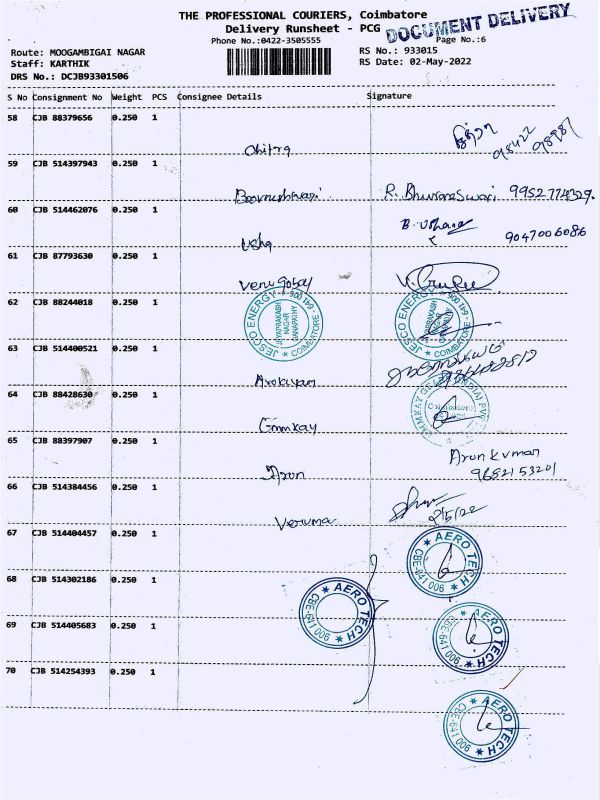 THE PROFESSIONAL COURIERS, Coimbatore
Delivery Runsheet - PCG
DOCUMENT DELIVERY
Phone No.:0422-3505555
Page No.:6
Route: MOOGAMBIGAI NAGAR
RS No.: 933015
Staff: KARTHIK
RS Date: 02-May-2022
DRS No.: DCJB93301506
S No Consignment No Weight PCS Consignee Details Signature
58 CJB 88379656 0.250 1
Chitra
59 CJB 514397943 0.250 1
R. Bhuvaneswari 9952774329.
60 CJB 514462076 0.250 1
Usha
9047006086
61 CJB 87793630 0.250 1
Venugobal
62 CJB 88244018 0.250 1
JESCO ENERGY ★ COIMBATORE - 641 006 ★
JAYAPRAKASH NAGAR GANAPATHY
JESCO ENERGY ★ COIMBATORE - 641 006 ★
JAYAPRAKASH NAGAR GANAPATHY
63 CJB 514400521 0.250 1
64 CJB 88428630 0.250 1
Emmkay
Coimbatore
65 CJB 88397907 0.250 1
Arun
Arun kuman
9682153201
66 CJB 514384456 0.250 1
2/5/22
67 CJB 514404457 0.250 1
★ AERO TECH ★ CBE-641 006
68 CJB 514302186 0.250 1
★ AERO TECH ★ CBE-641 006
69 CJB 514405683 0.250 1
★ AERO TECH ★ CBE-641 006
70 CJB 514254393 0.250 1
★ AERO TECH ★ CBE-641 006